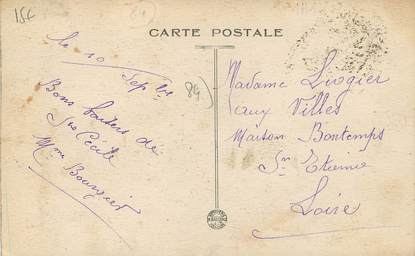 15€
(84)
CARTE POSTALE
Le 10 Sep
84)
Bons baisers de
Ste Cécile
Madame Liogier
aux Villes
Maison Bontemps
St Etienne
Loire